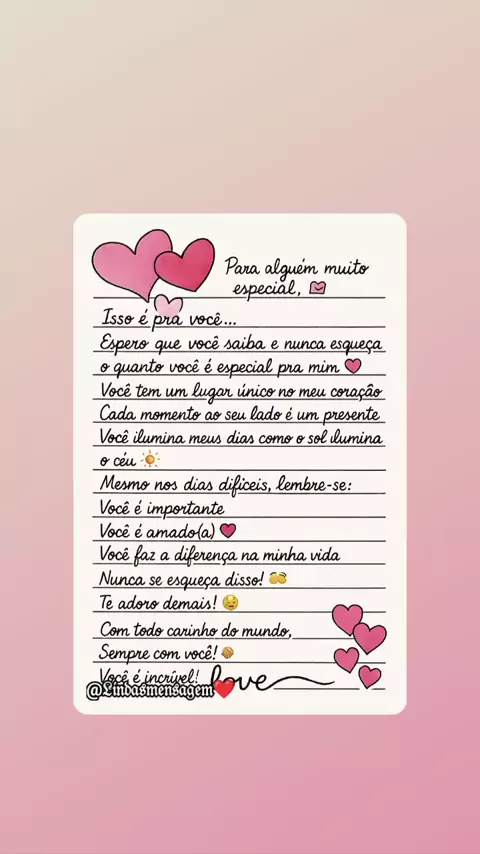 Para alguém muito
especial, 💌
Isso é pra você...
Espero que você saiba e nunca esqueça
o quanto você é especial pra mim
Você tem um lugar único no meu coração
Cada momento ao seu lado é um presente
Você ilumina meus dias como o sol ilumina
o céu ☀️
Mesmo nos dias difíceis, lembre-se:
Você é importante
Você é amado(a)
Você faz a diferença na minha vida
Nunca se esqueça disso!
Te adoro demais!
Com todo carinho do mundo,
Sempre com você!
Você é incrível! love
@Lindasmensagem❤️